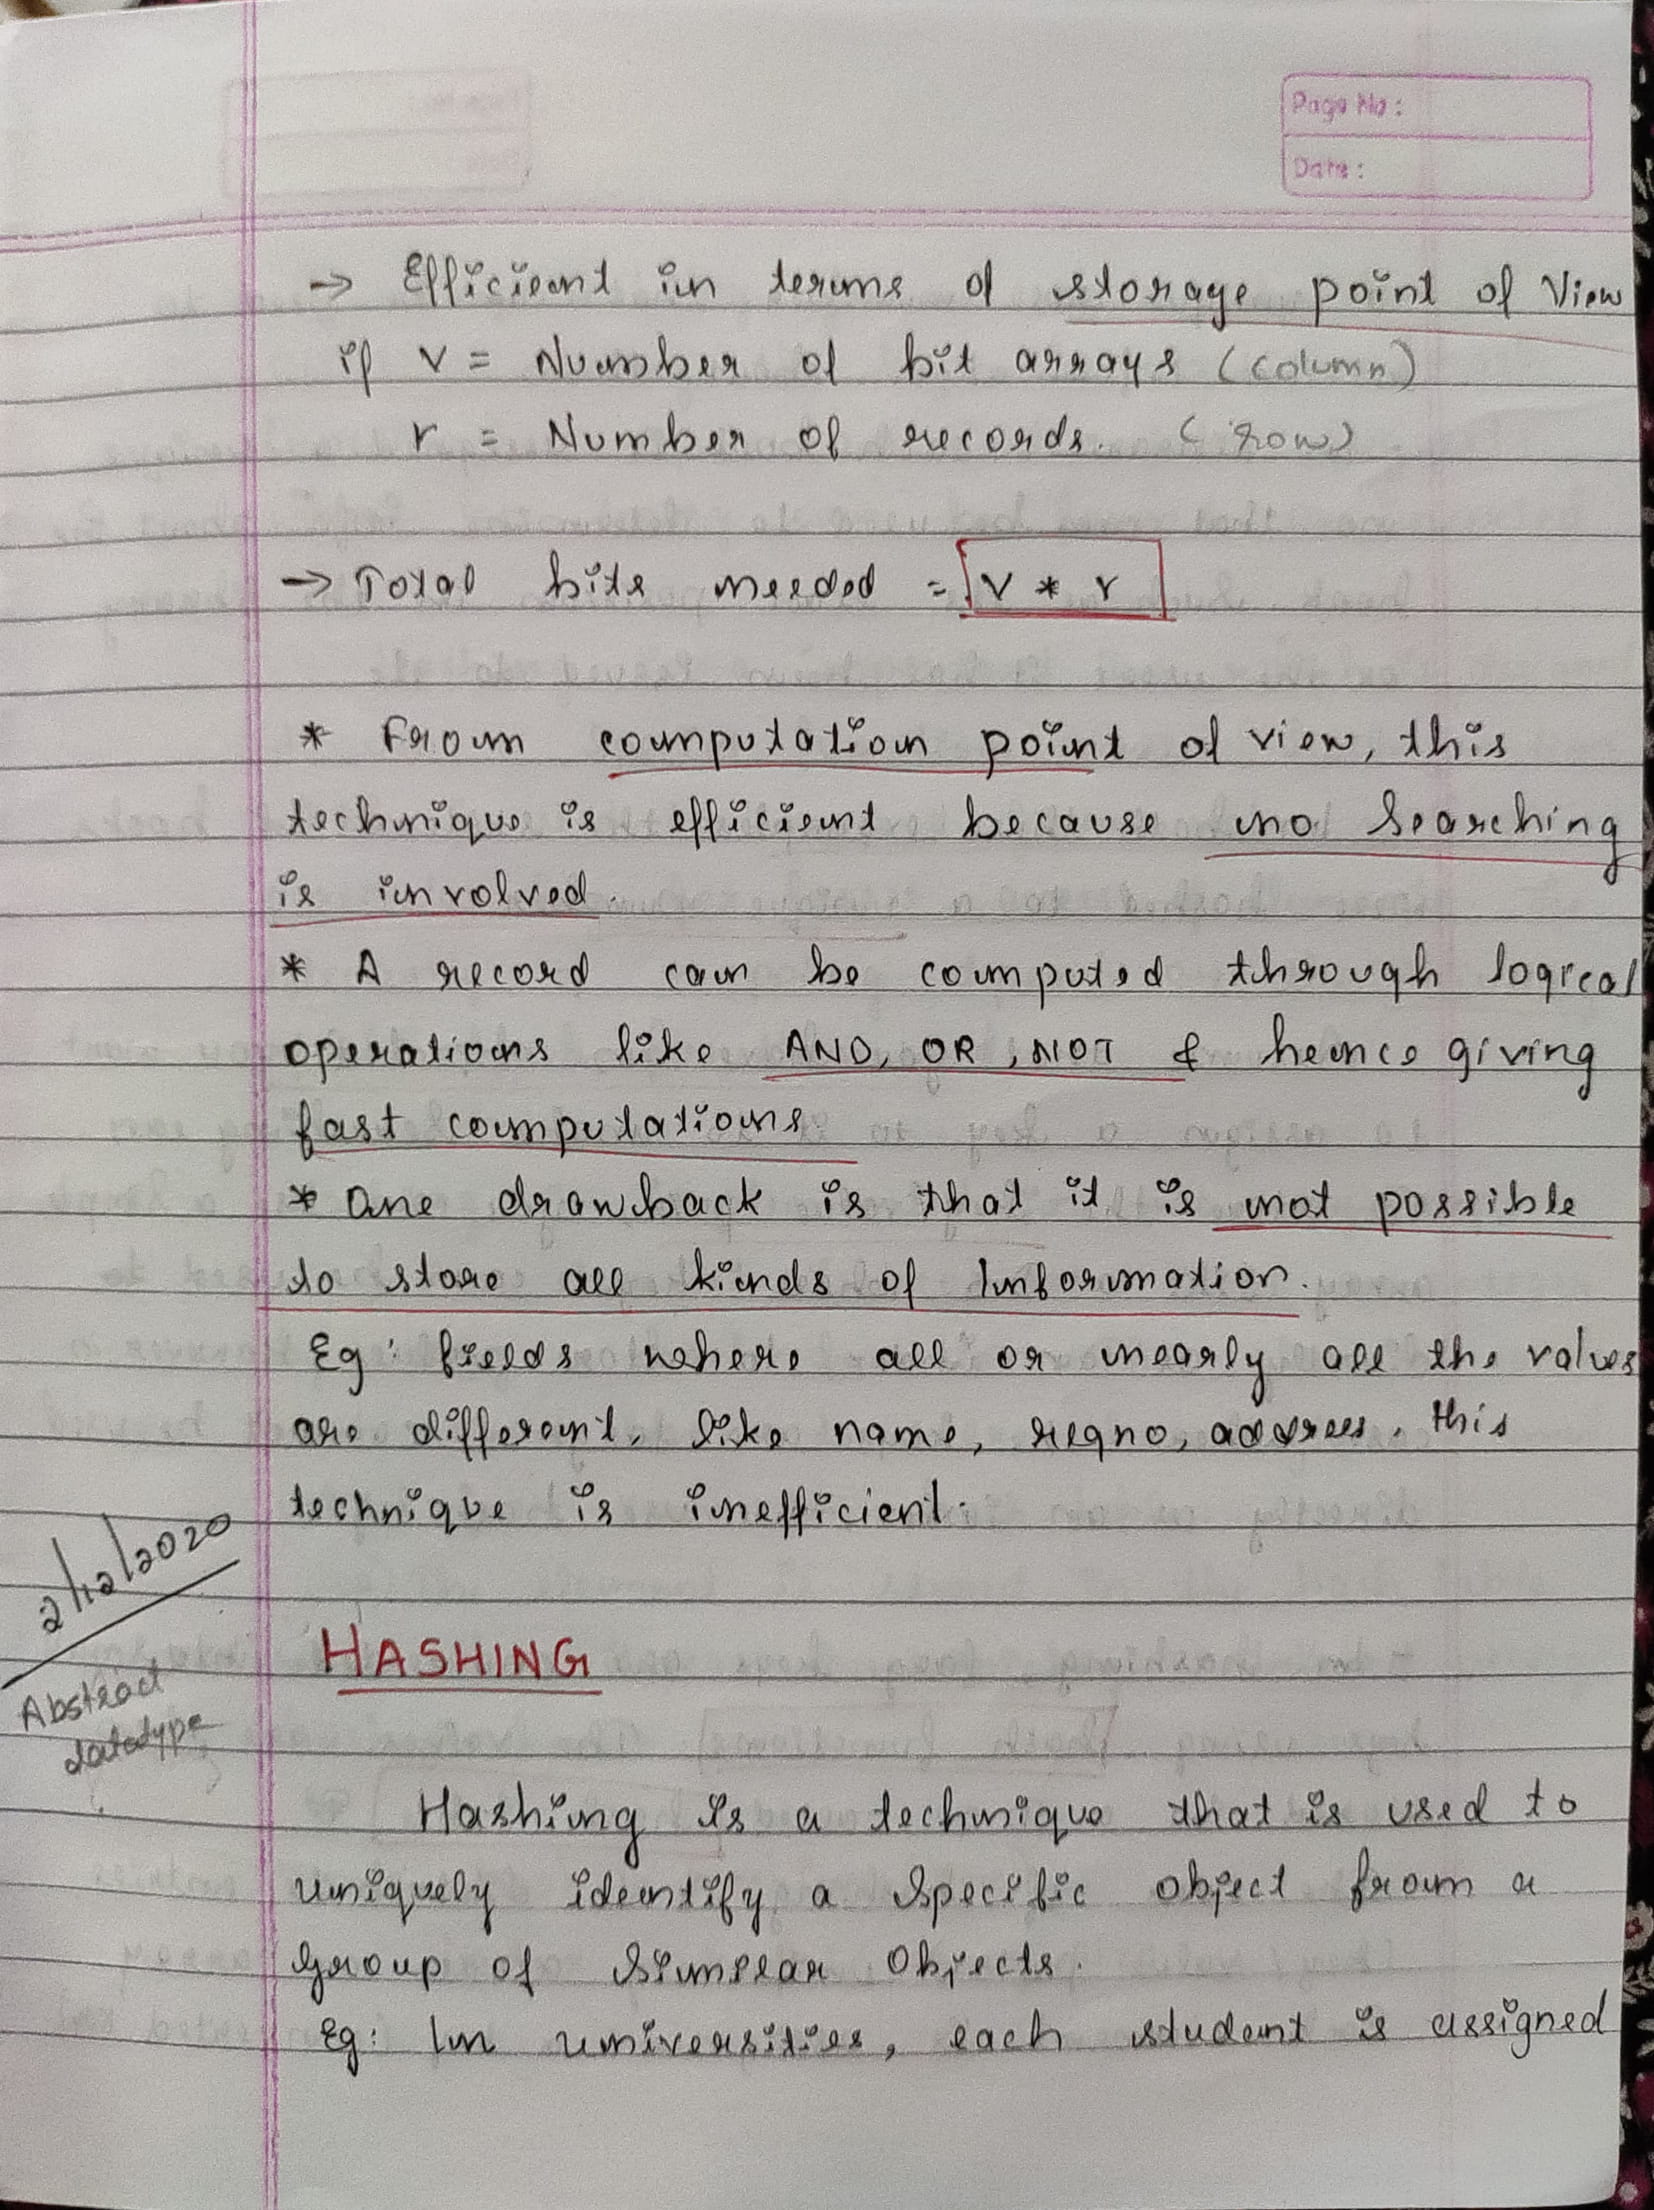 Page No :
Date :
→ Efficient in terms of storage point of View
if v = Number of bit arrays (column)
r = Number of records. (row)
→ Total bits needed = v * r
* From computation point of view, this
technique is efficient because no Searching
is involved.
* A record can be computed through logical
operations like AND, OR, NOT & hence giving
fast computations.
* One drawback is that it is not possible
to store all kinds of Information.
Eg: fields where all or nearly all the values
are different, like name, regno, address, this
technique is inefficient.
2/12/2020
Abstract
datatype
HASHING
Hashing is a technique that is used to
uniquely identify a Specific object from a
group of Similar Objects.
Eg: In universities, each student is assigned